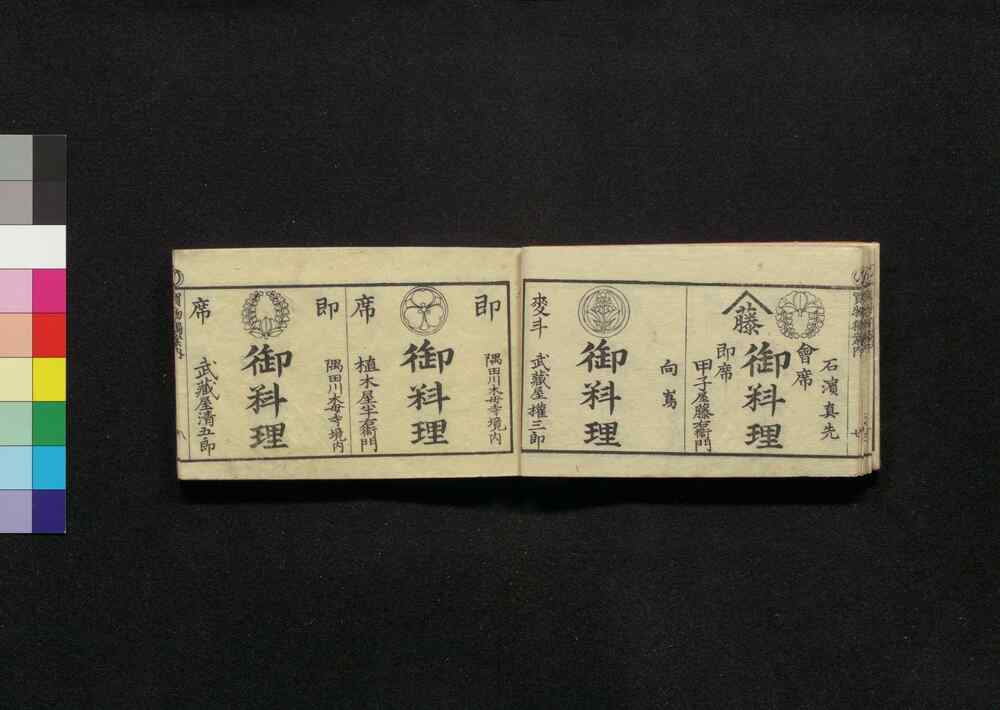 石濱真先
會席
藤
御料理
即席
甲子屋藤右衛門
向嶌
御料理
麥斗
武藏屋權三郎
即
隅田川木母寺境内
御料理
席
植木屋半右衛門
即
隅田川木母寺境内
御料理
席
武藏屋清五郎